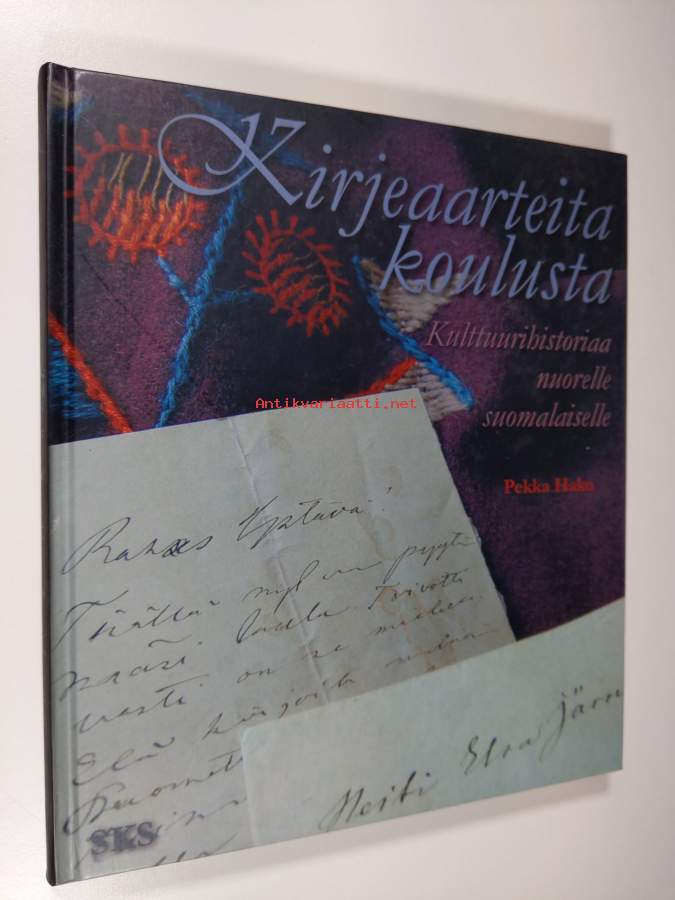 Kirjeaarteita
koulusta
Kulttuurihistoriaa
nuorelle
suomalaiselle
Antikvariaatti.net
Pekka Hako
Rakas Ystävä!
Täällä nyt on pyytä
Elä kirjoita
Neiti Elra Järn
SKS